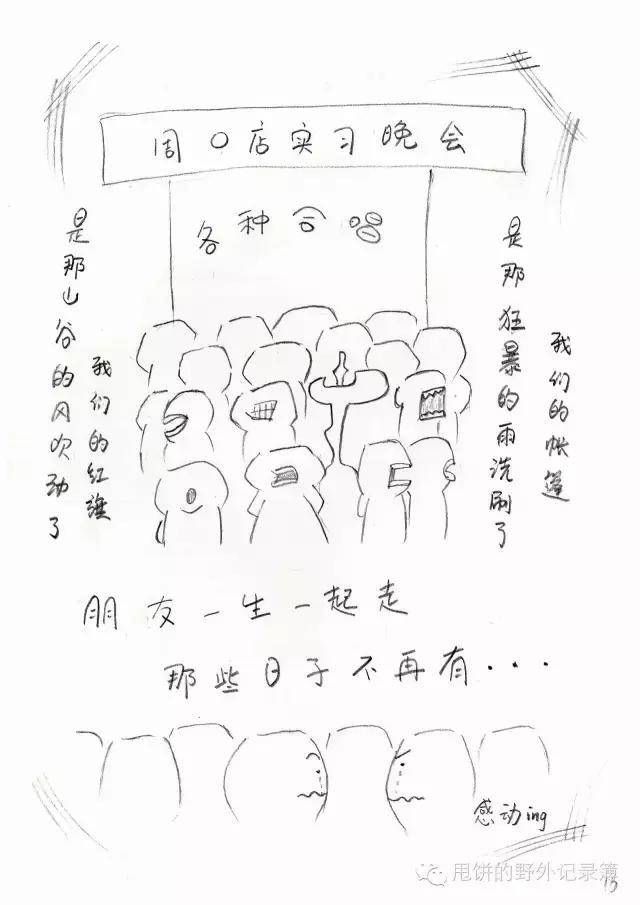 周口店实习晚会
各种合唱
是那山谷的风吹动了
我们的红旗
是那狂暴的雨洗刷了
我们的帐篷
朋友一生一起走
那些日子不再有...
感动ing
甩饼的野外记录簿
15